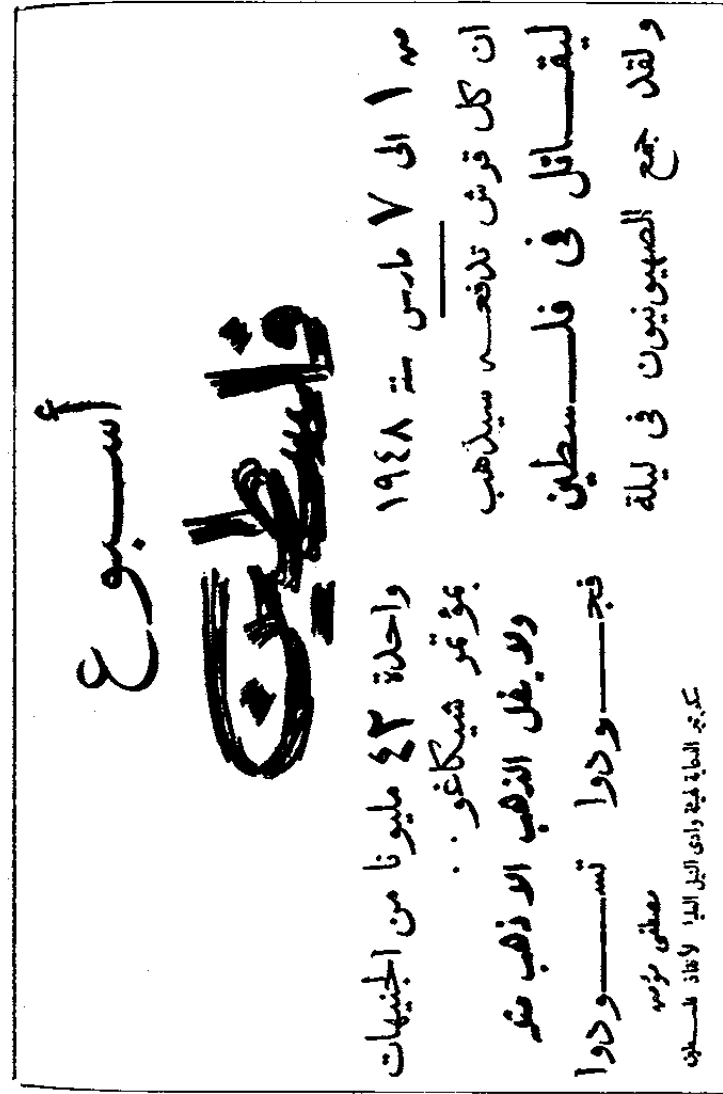 أسبوع
فلسطين
من ١ الى ٧ مارس سنة ١٩٤٨
ان كل قرش تدفعه سيذهب
ليقـــاتل فى فلـــسطين
ولقد جمع الصهيونيون فى ليلة
واحدة ٤٢ مليونا من الجنيهات
بمؤتمر شيكاغو ..
ولا يفل الذهب الا ذهب مثله
فجـــودوا تســـودوا
مصطفى مؤمن
سكرتير الدعاية لهيئة وادى النيل العليا لانقاذ فلسطين